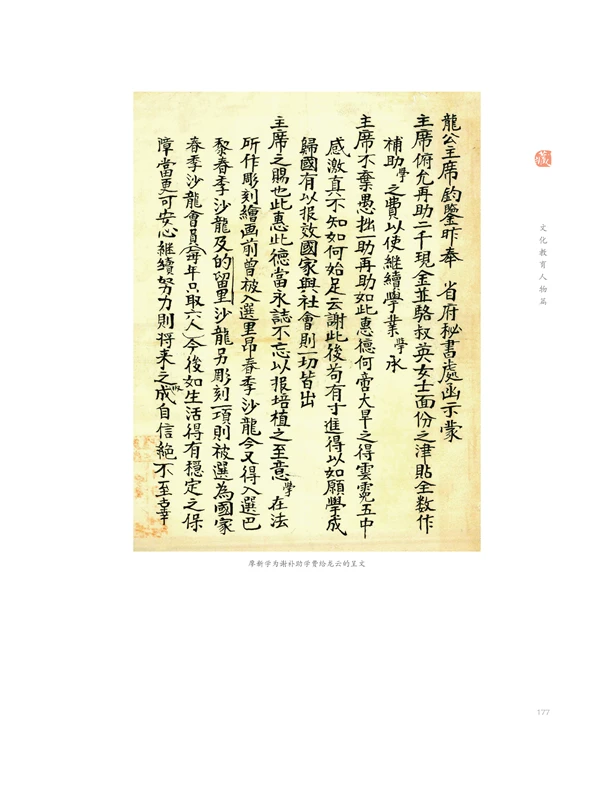 龍公主席鈞鑒昨奉　省府秘書處函示蒙
主席俯允再助二千現金並駱叔英女士面份之津貼全数作
補助學之費以使繼續學業學承
主席不棄愚拙一助再助如此惠德何啻大旱之得雲霓五中
感激真不知如何始足云謝此後苟有寸進得以如願學成
歸國有以报效國家與社會則一切皆出
主席之賜也此惠此德當永誌不忘以报培植之至意學在法
所作彫刻繪画前曾被入選里昂春季沙龍今又得入選巴
黎春季沙龍及的留里沙龍另彫刻一項則被選為國家
春季沙龍會員(每年只取六人)今後如生活得有穩定之保
障當更可安心繼續努力則將来之成自信絕不至幸
文化教育人物篇
廖新学为谢补助学费给龙云的呈文
177